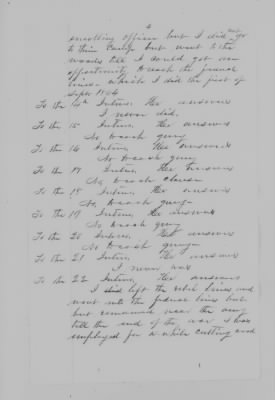 2
enrolling officer but I did not go
to their Camp but went to the
woods till I could get an
opportunity to reach the federal
lines. which I did the first of
Sept 1864
To the 14th Inters, He answers
I never did.
To the 15 Inters, He answers
No to each query
To the 16 Inters, He answers
No to each query
To the 17 Inters, He answers
No, to each clause
To the 18 Inters, He answers
No, to each query
To the 19 Inters, He answers
No to each query
To the 20 Inters, He answers
No to each query
To the 21 Inters, He answers
I never was
To the 22 Inters, He answers
I did left the rebel lines and
went into the federal lines but
but remained near the army
till the end of the war I was
employed for a while cutting wood